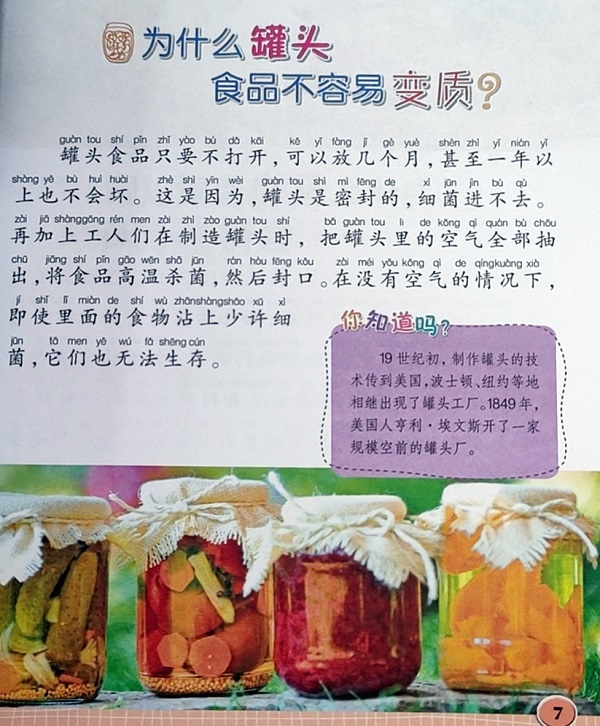 为什么罐头
食品不容易变质?
guàn tou shí pǐn zhǐ yào bù dǎ kāi kě yǐ fàng jǐ gè yuè shèn zhì yì nián yǐ
罐头食品只要不打开,可以放几个月,甚至一年以
shàng yě bú huì huài zhè shì yīn wèi guàn tou shì mì fēng de xì jūn jìn bù qù
上也不会坏。这是因为,罐头是密封的,细菌进不去。
zài jiā shàng gōng rén men zài zhì zào guàn tou shí bǎ guàn tou li de kōng qì quán bù chōu
再加上工人们在制造罐头时,把罐头里的空气全部抽
chū jiāng shí pǐn gāo wēn shā jūn rán hòu fēng kǒu zài méi yǒu kōng qì de qíng kuàng xià
出,将食品高温杀菌,然后封口。在没有空气的情况下,
jí shǐ lǐ miàn de shí wù zhān shàng shǎo xǔ xì
即使里面的食物沾上少许细
jūn tā men yě wú fǎ shēng cún
菌,它们也无法生存。
你知道吗?
19世纪初,制作罐头的技
术传到美国,波士顿、纽约等地
相继出现了罐头工厂。1849年,
美国人亨利·埃文斯开了一家
规模空前的罐头厂。
7